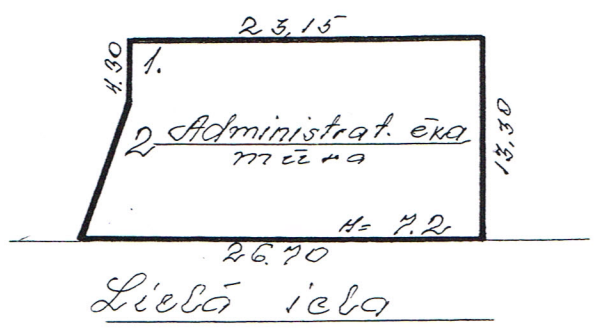 23,15
4.30
1.
2 Administrat. ēka
mūra
13,30
H= 7.2
26.70
Lielā iela